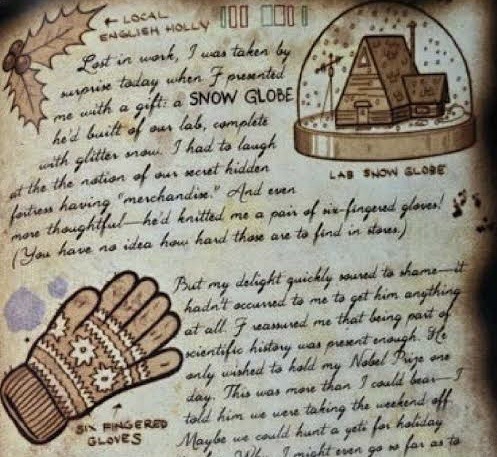 ← LOCAL
ENGLISH HOLLY
Lost in work, I was taken by
surprise today when F presented
me with a gift: a SNOW GLOBE
he'd built of our lab, complete
with glitter snow. I had to laugh
at the the notion of our secret hidden
fortress having "merchandise." And even
more thoughtful—he'd knitted me a pair of six-fingered gloves!
(You have no idea how hard those are to find in stores.)
LAB SNOW GLOBE
But my delight quickly soured to shame—it
hadn't occurred to me to get him anything
at all. F reassured me that being part of
scientific history was present enough. He
only wished to hold my Nobel Prize one
day. This was more than I could bear—I
told him we were taking the weekend off.
Maybe we could hunt a yeti for holiday
Why, I might even go so far as to
SIX FINGERED
GLOVES